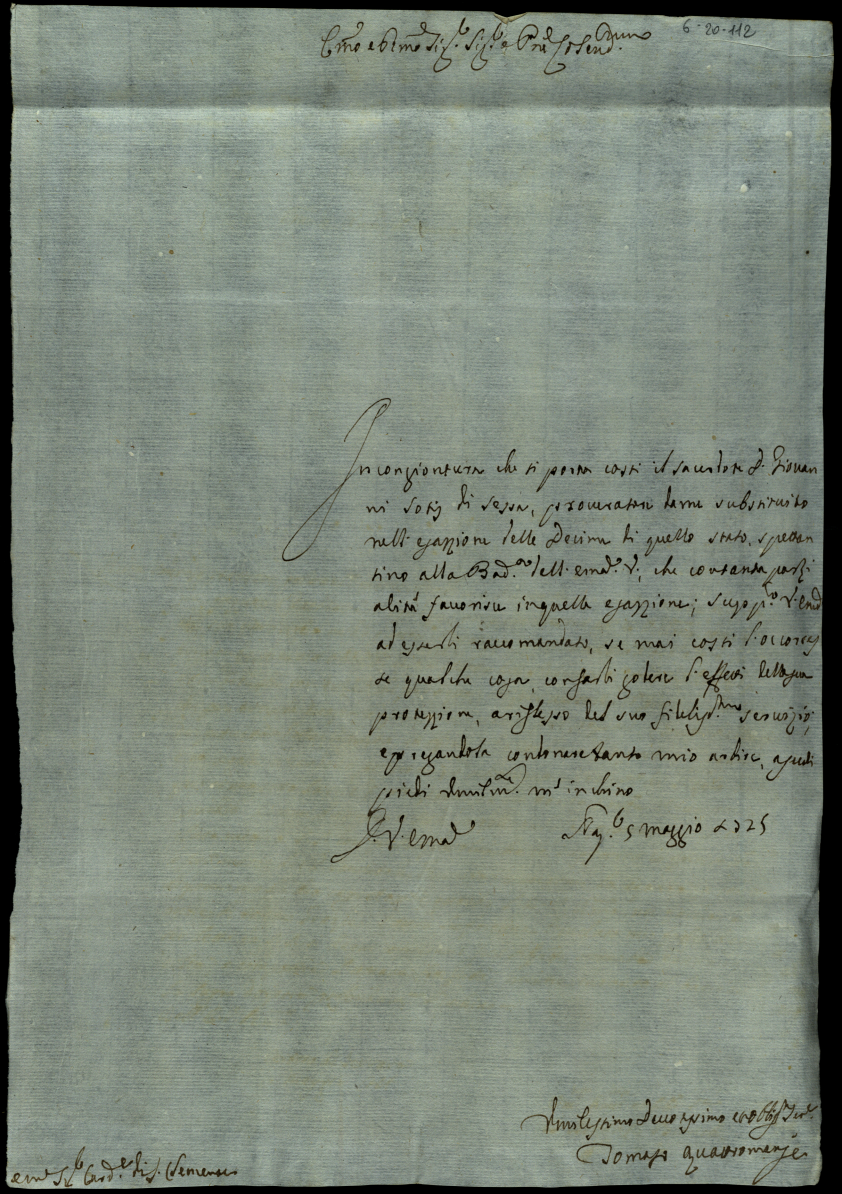 6-20-112
Em.o e R.mo Sig.r Sig.r e Pne Colend.mo
In congiontura che si porta costì il sacerdote D. Giovan
ni Sotis di Sessa, procuratore da me substituito
nell'esazzione delle Decime di quello stato, spettan
tino alla Bad.a dell'Em.a V., che con tanta parzi
alità favorisce in quella esazzione; supp.co V. Em.a
ad esserli raccomandato, se mai costì l'occorres
se qualche cosa, con farli godere l'effetti della sua
protezzione, a riflesso del suo fidelis.mo servizio,
e pregandola condonare tanto mio ardire, a suoi
piedi umilm.e m'inchino
D. V. Em.a
Nap.li 5 maggio 1725
Umilissimo Devotissimo ed obblig.mo Ser.e
Tomaso Quattromani
Em.o Sig.r Card.le di S. Clemente